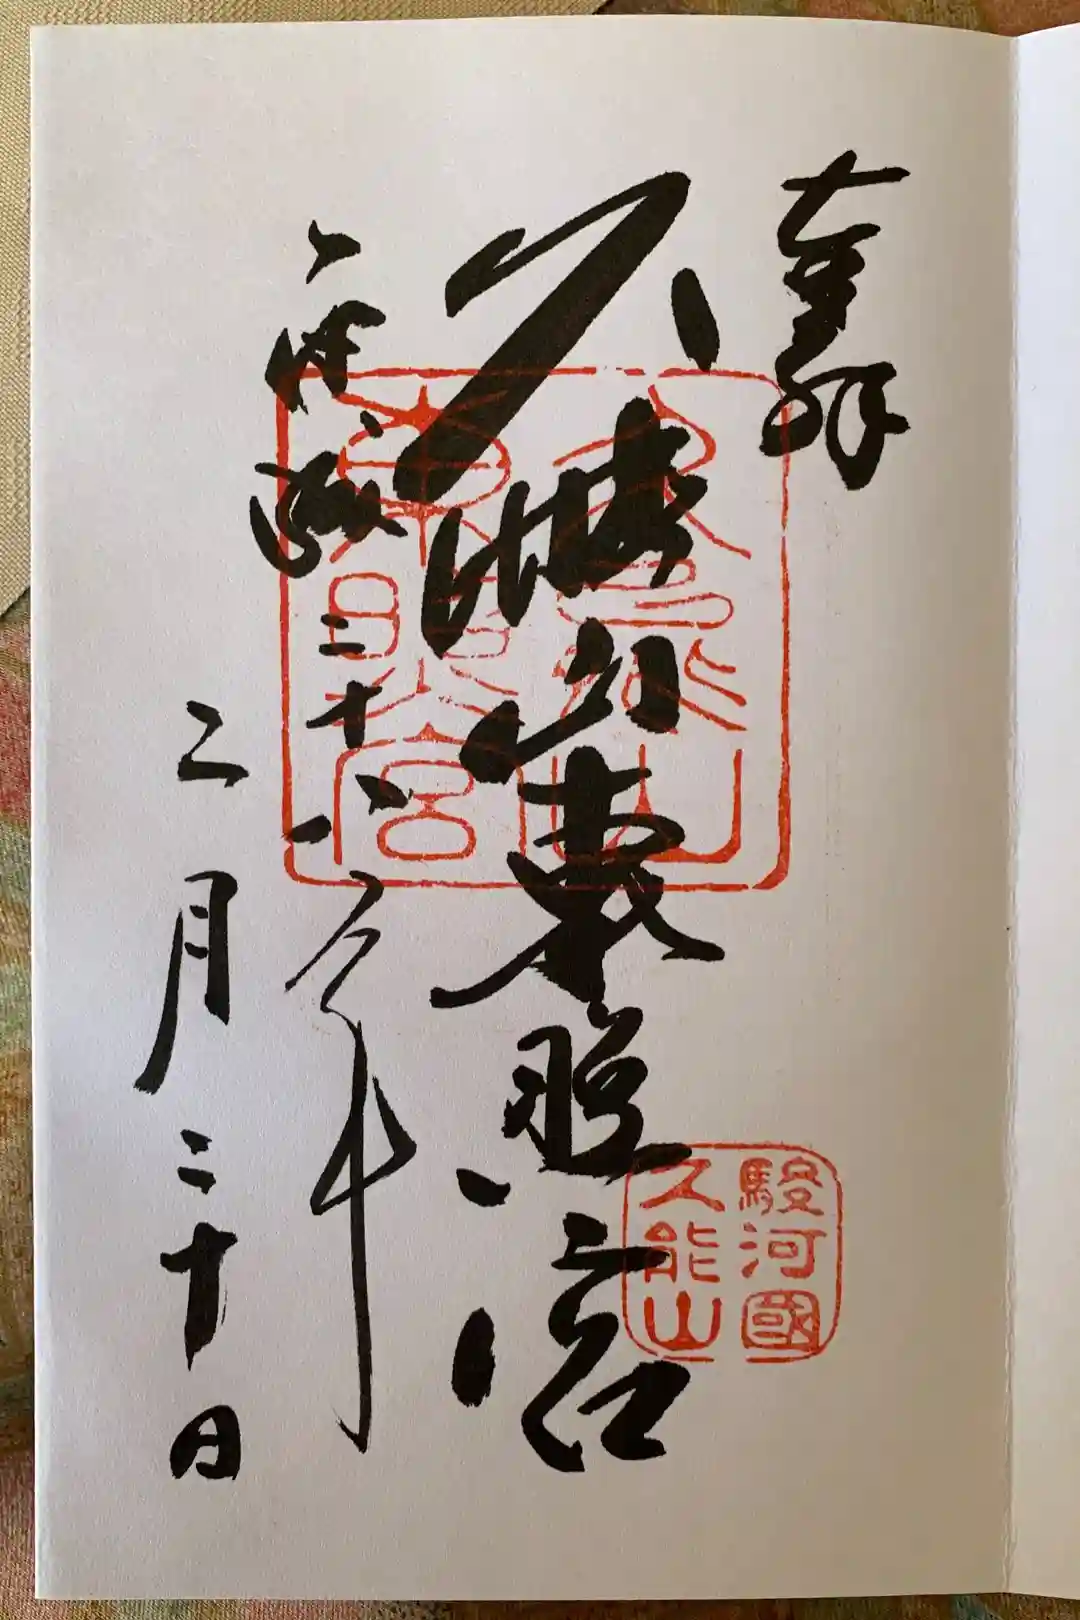 奉拝
久能山東照宮
平成二十八年
二月二十日
久能山
東照宮
駿河國
久能山